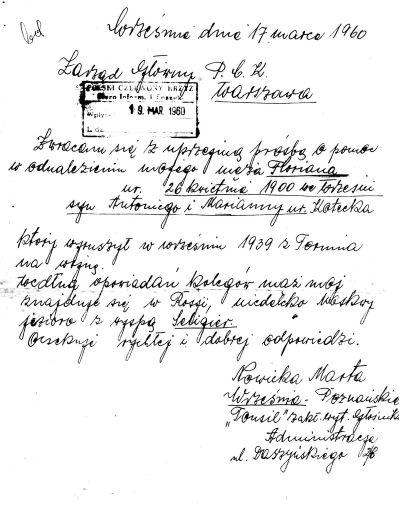 Września dnia 17 marca 1960
Zarząd Główny P.C.K.
Warszawa
POLSKI CZERWONY KRZYŻ
Biuro Inform. i Poszuk.
Wpłynęło
19. MAR. 1960
L. dz.
Zwracam się z uprzejmą prośbą o pomoc
w odnalezieniu mojego męża Floriana
ur. 26 kwietnia 1900 we Wrześni
syn Antoniego i Marianny ur. Kotecka
który wyruszył w wrześniu 1939 z Torunia
na wojnę.
Według opowiadań kolegów mąż mój
znajduje się w Rosji, niedaleko Moskwy
jezioro z wyspą Seligier.
Oczekuję rychłej i dobrej odpowiedzi.
Nowicka Marta
Września - Poznańskie
"Tonsil" zakł. wyt. Głośnik
Administracja
ul. Daszyńskiego